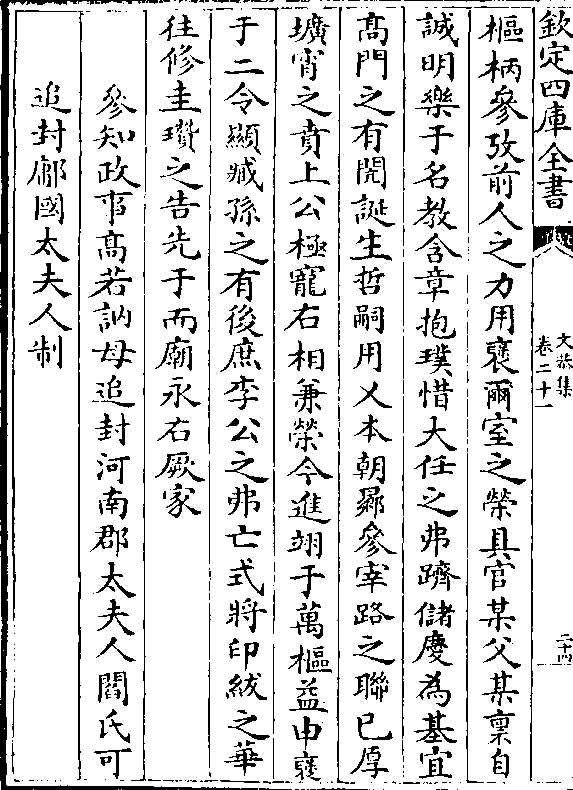 欽定四庫全書
文恭集
卷二十一
二十四
樞柄參攷前人之力用褒爾室之榮具官某父某稟自
誠明樂于名教含章抱璞惜大任之弗躋儲慶為基宜
髙門之有閎誕生哲嗣用乂本朝曏參宰路之聯已厚
壙窅之賁上公極寵右相兼榮今進翊于萬樞益申褒
于二令顯臧孫之有後庶李公之弗亡式將印紱之華
往修圭瓚之告先于而廟永右厥家
參知政事髙若訥母追封河南郡太夫人閻氏可
追封鄘國太夫人制